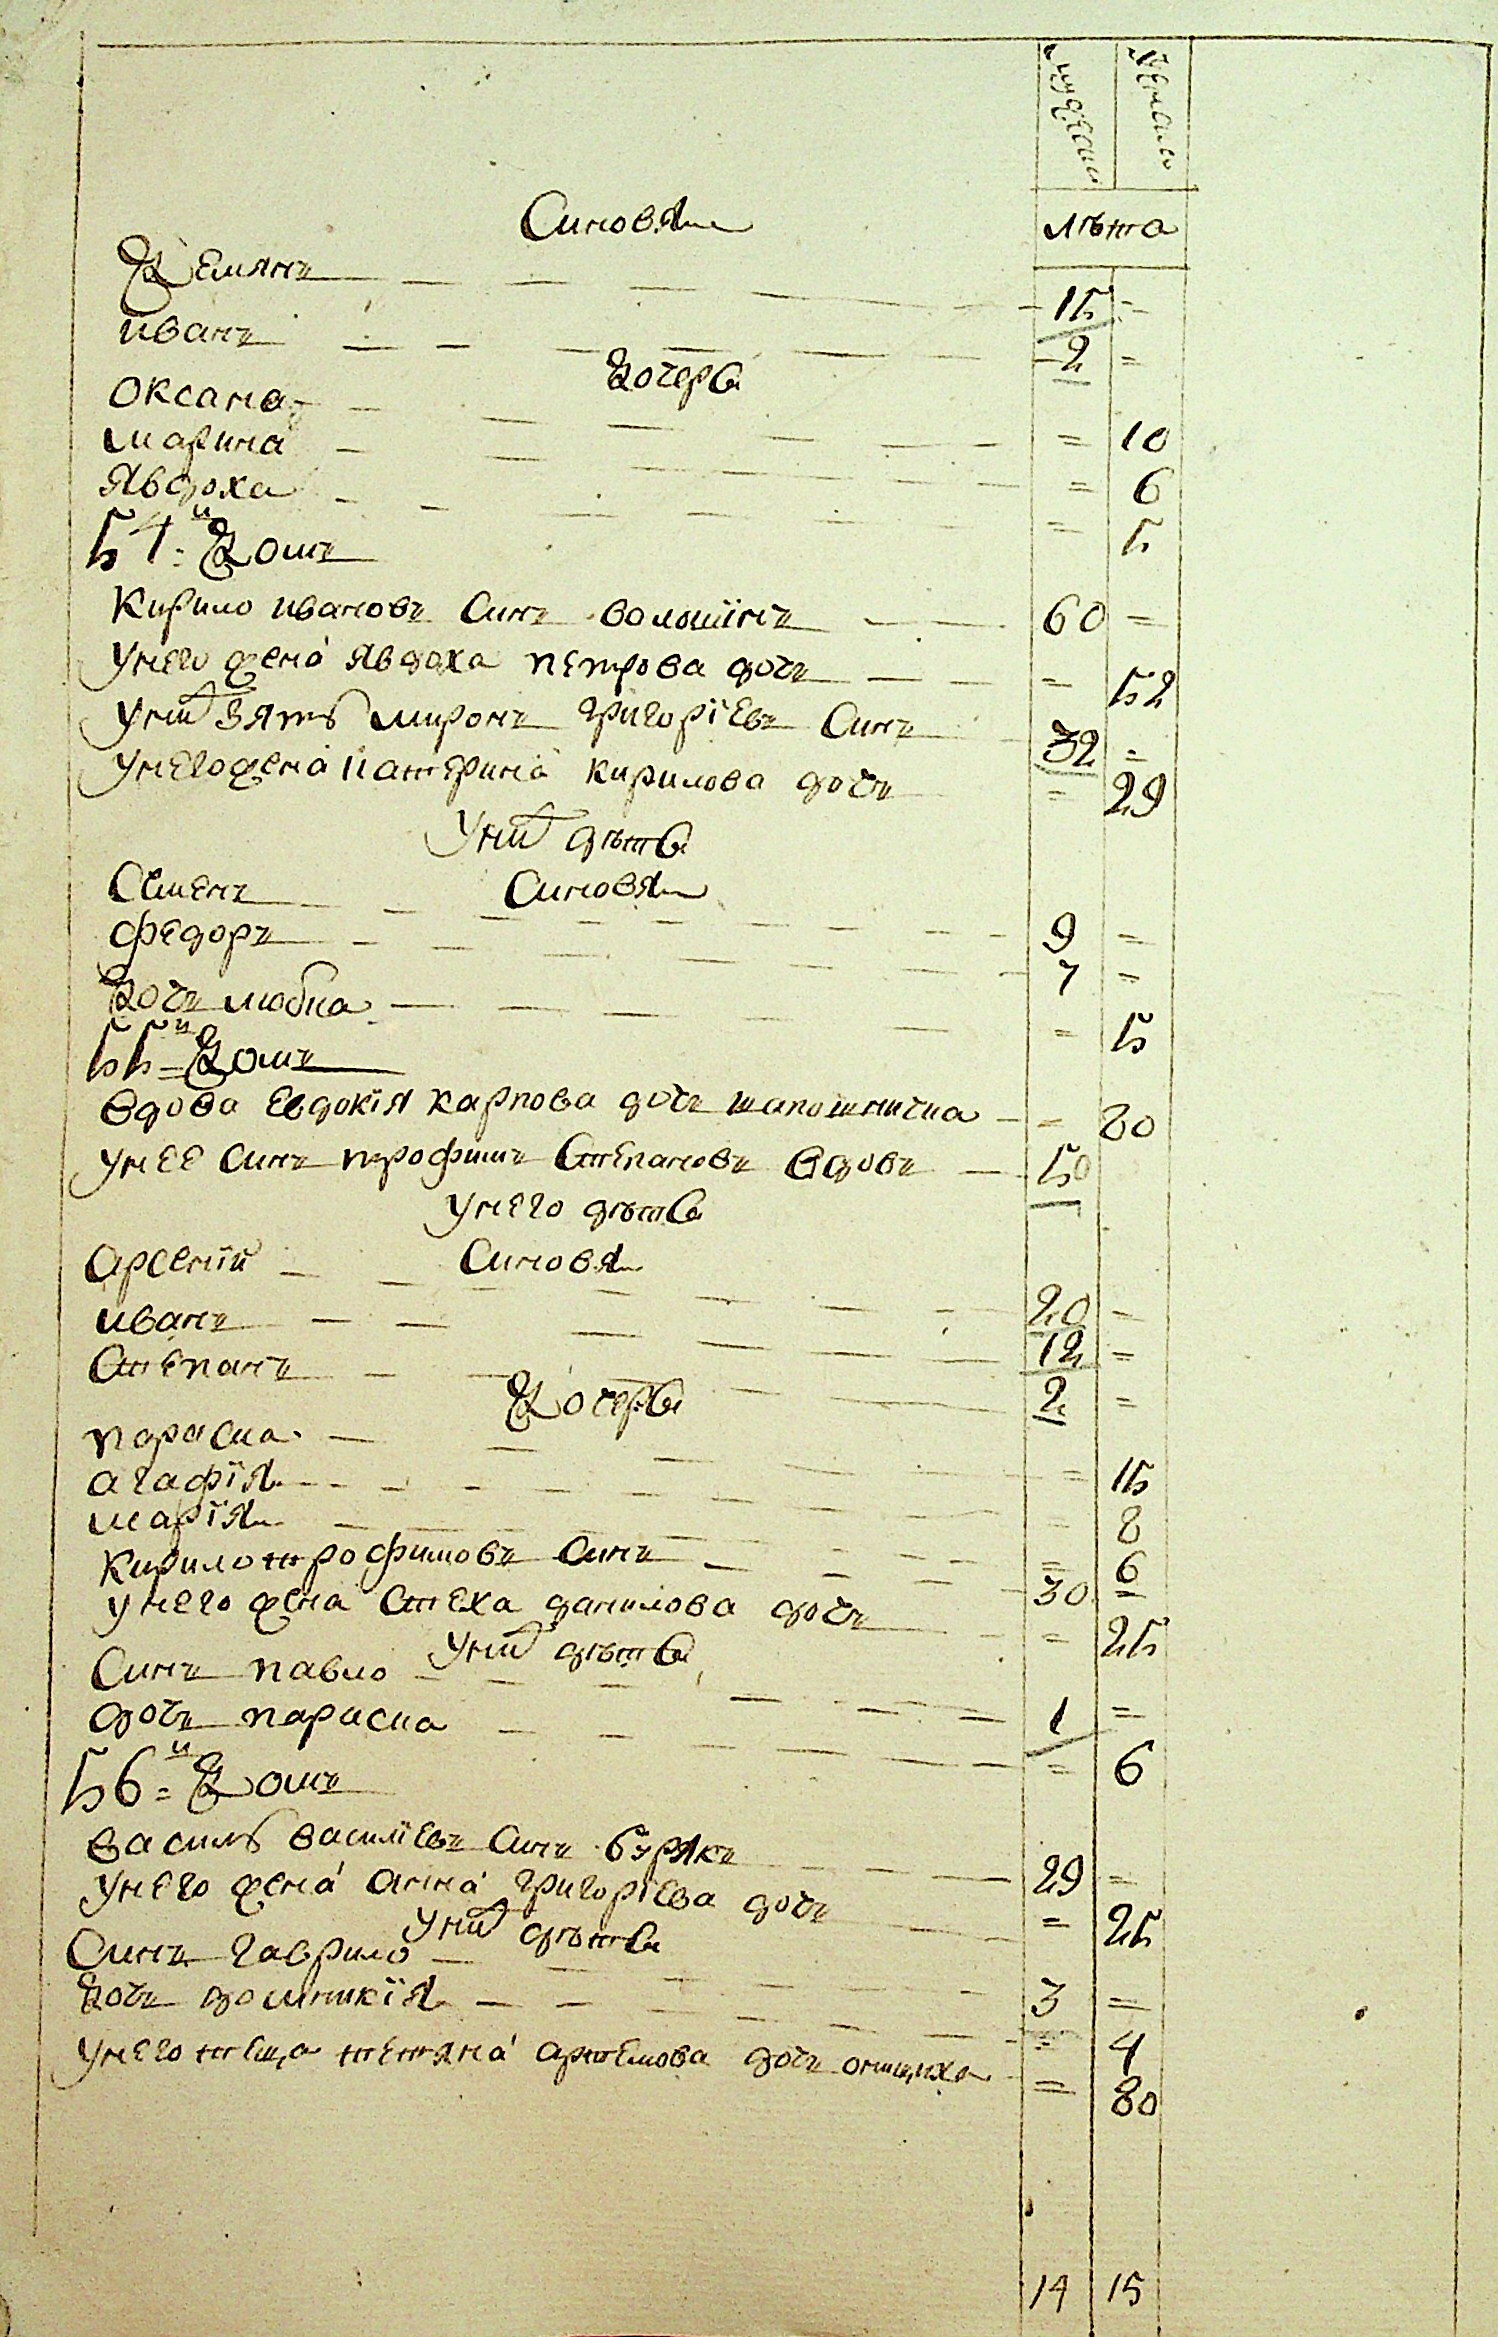 мужескъ женска
Синовя лѣта
Демянъ 15 =
иванъ 2 =
Дочери
оксана = 10
марина = 6
явдоха = 5
54=й Домъ
Кирило ивановъ Синъ волошінъ 60 =
Унего жена явдоха петрова дочъ = 52
Уних зять миронъ григоріевъ Синъ 32 =
Унего жена катерина кирилова дочъ = 29
Уних дѣти
Синовя
Семенъ 9 =
федоръ 7 =
Дочъ любка = 5
55=й Домъ
вдова евдокія карпова дочъ шапошничка = 80
унее Синъ трофимъ Степановъ вдовъ 50
Унего дѣти
Синовя
арсеній 20 =
иванъ 12 =
Степанъ 2 =
Дочери
параска = 15
агафія = 8
марія = 6
кирило трофимовъ Синъ 30 =
унего жена Стеха данилова дочъ = 25
Уних дѣти
Синъ павло 1 =
дочъ параска = 6
56=й Домъ
василь василіевъ Синъ бурякъ 29 =
Унего жена анна григоріева дочъ = 25
Уних дѣти
Синъ гаврило 3 =
Дочъ домникія = 4
Унего теща тетяна артемова дочъ онищиха = 80
14 15